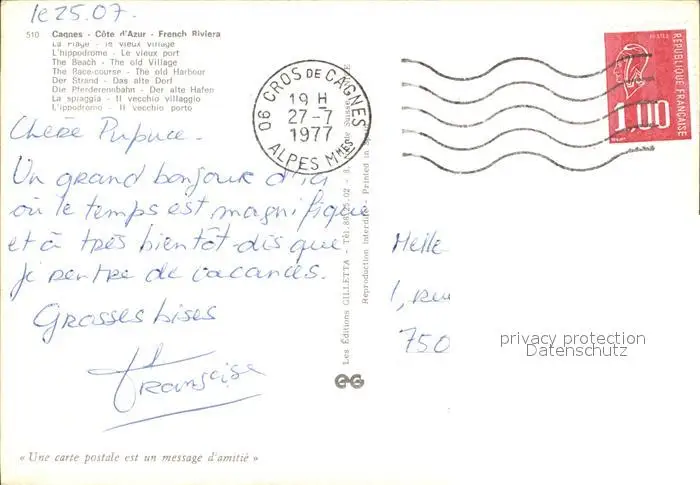 le 25.07.
510 Cagnes - Côte d'Azur - French Riviera
La Plage - le vieux village
L'hippodrome - Le vieux port
The Beach - The old Village
The Race-course - The old Harbour
Der Strand - Das alte Dorf
Die Pferderennbahn - Der alte Hafen
La spiaggia - Il vecchio villaggio
L'ippodromo - Il vecchio porto
Chère Pupuce -
Un grand bonjour d'ici
où le temps est magnifique
et à très bientôt dis que
je rentre de vacances.
Grosses bises
Françoise
« Une carte postale est un message d'amitié »
06 CROS DE CAGNES
19 H
27-7
1977
ALPES MMES
Les Éditions GILLETTA - Tél.
Reproduction interdite - Printed in
EG
POSTES
RÉPUBLIQUE FRANÇAISE
1,00
Melle
1, rue
750
privacy protection
Datenschutz